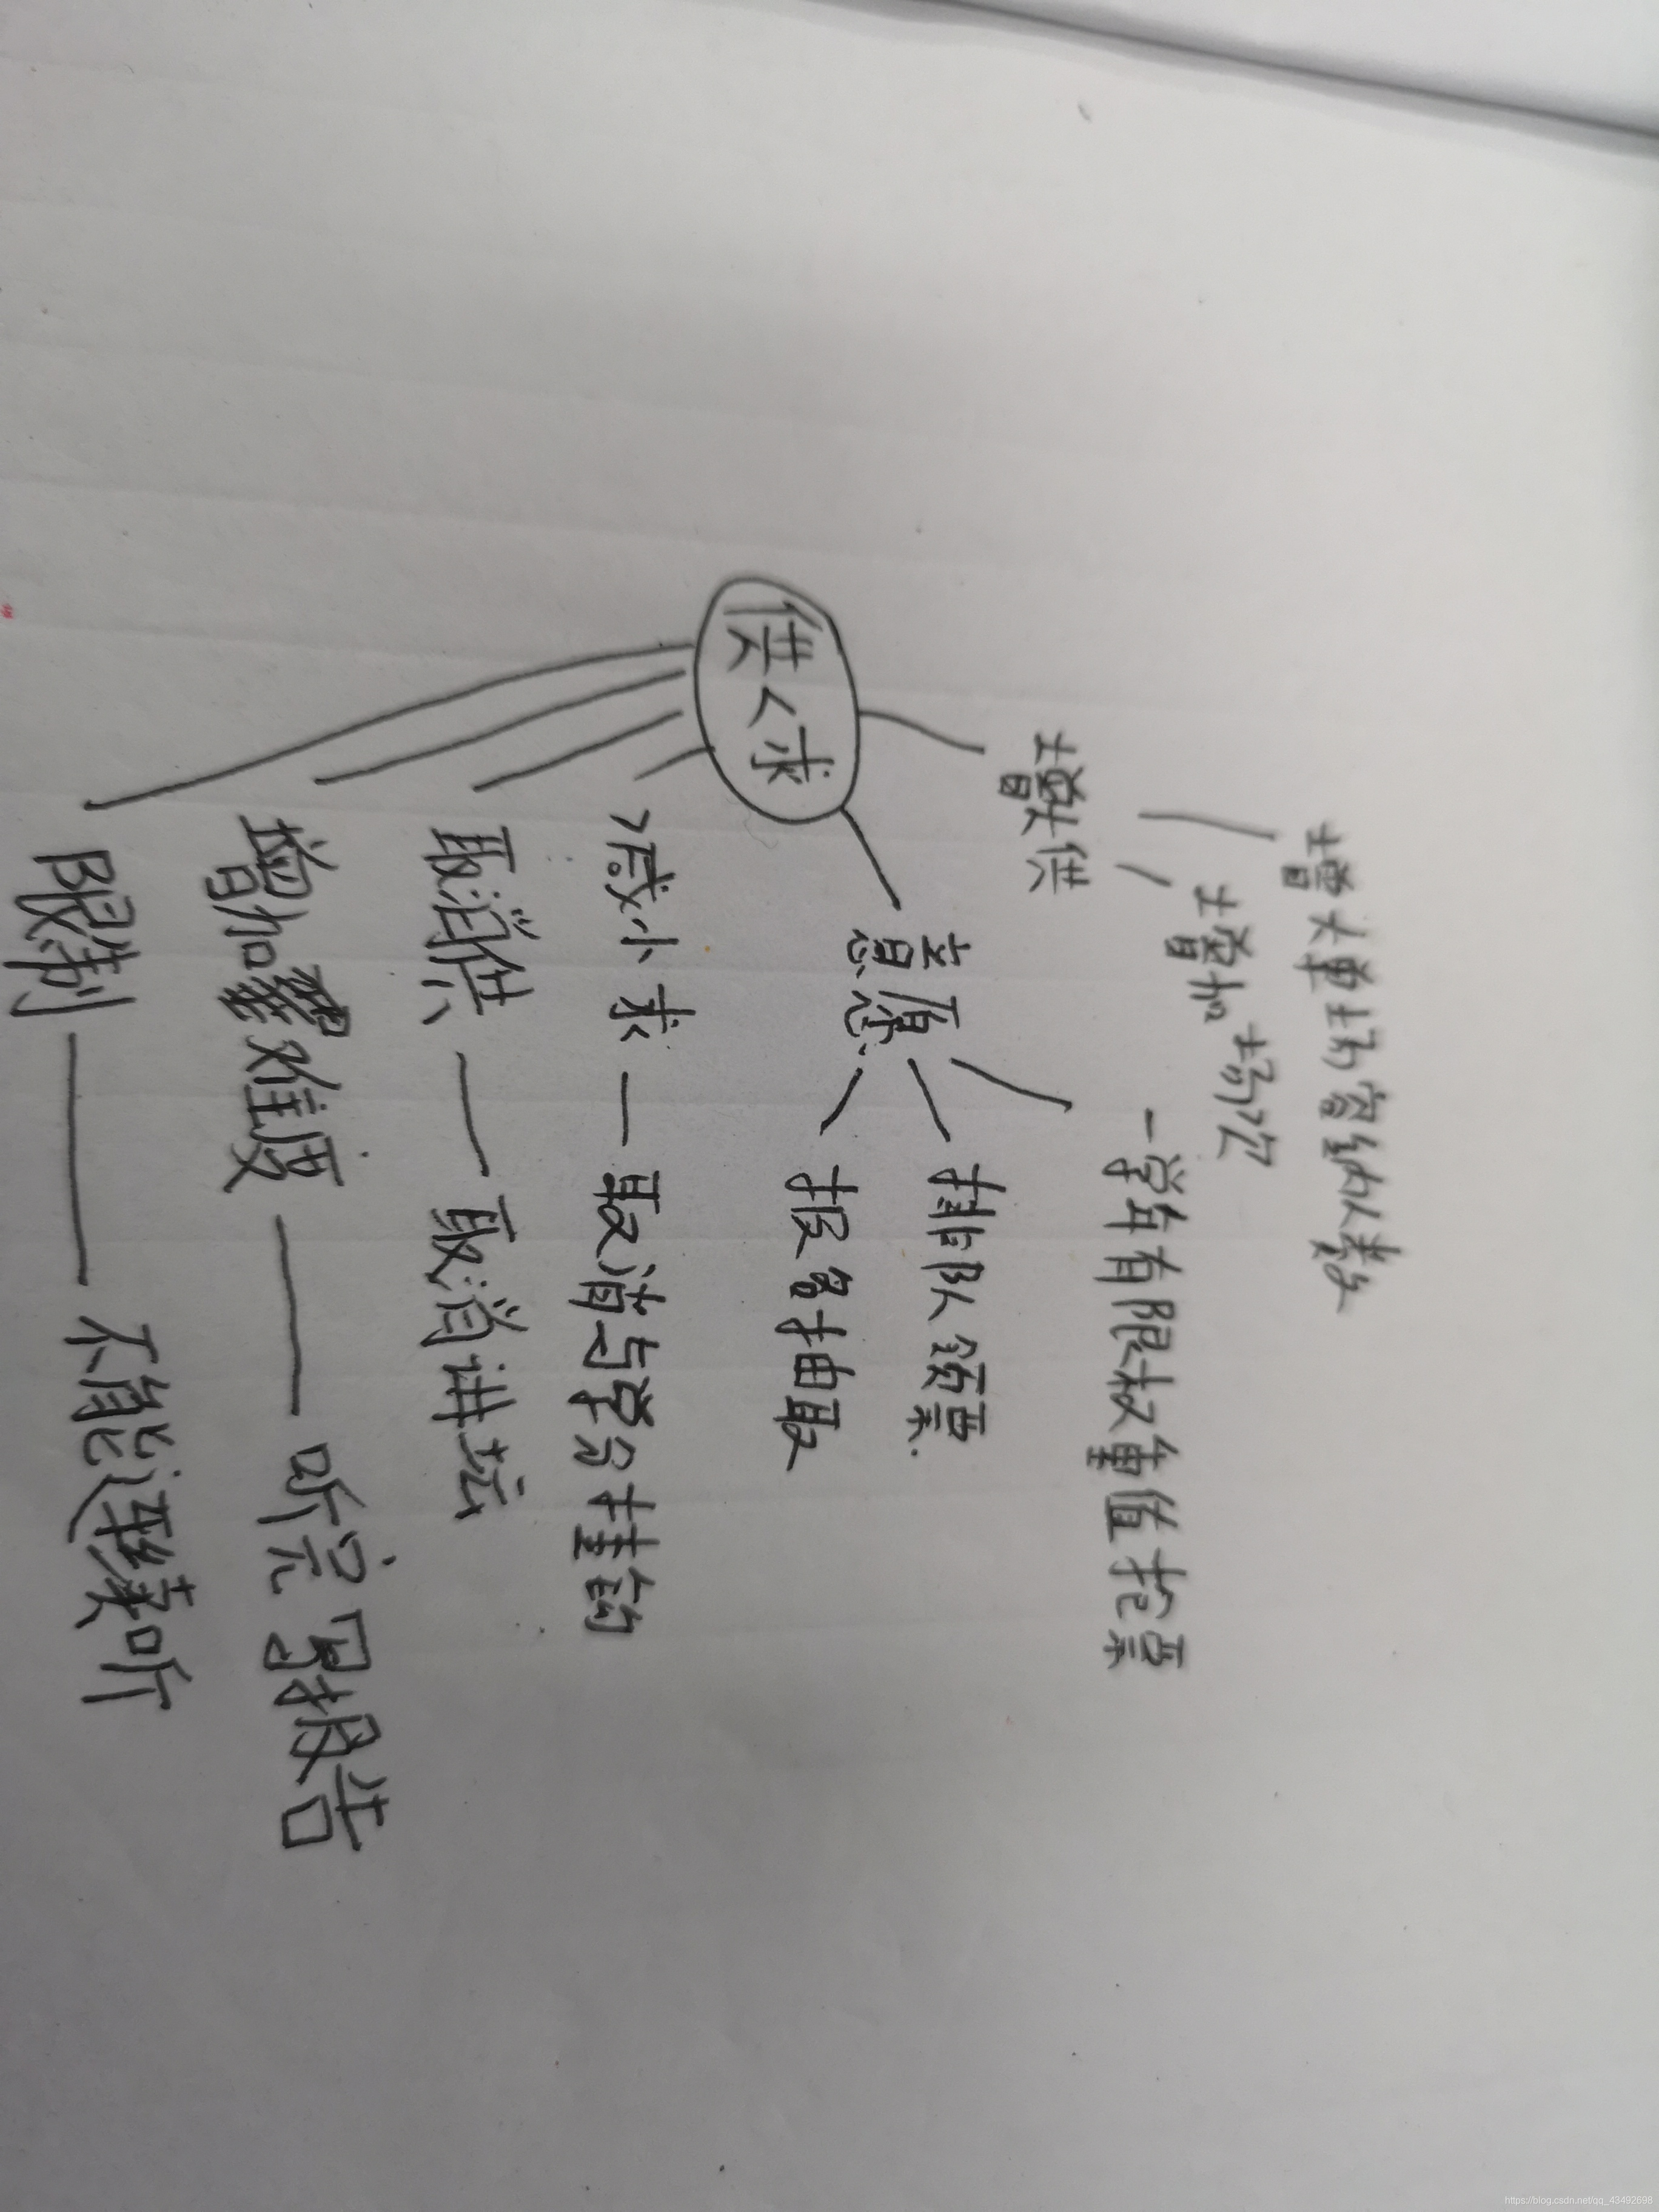 增大单场容纳人数
增加场次
增大供
一学年有限权重值抢票
排队领票
意愿
报名抽取
供<求
减小求 — 取消与学分挂钩
取消供 — 取消讲坛
增加难度 — 听完写报告
限制 — 不能连续听
https://blog.csdn.net/qq_43492698